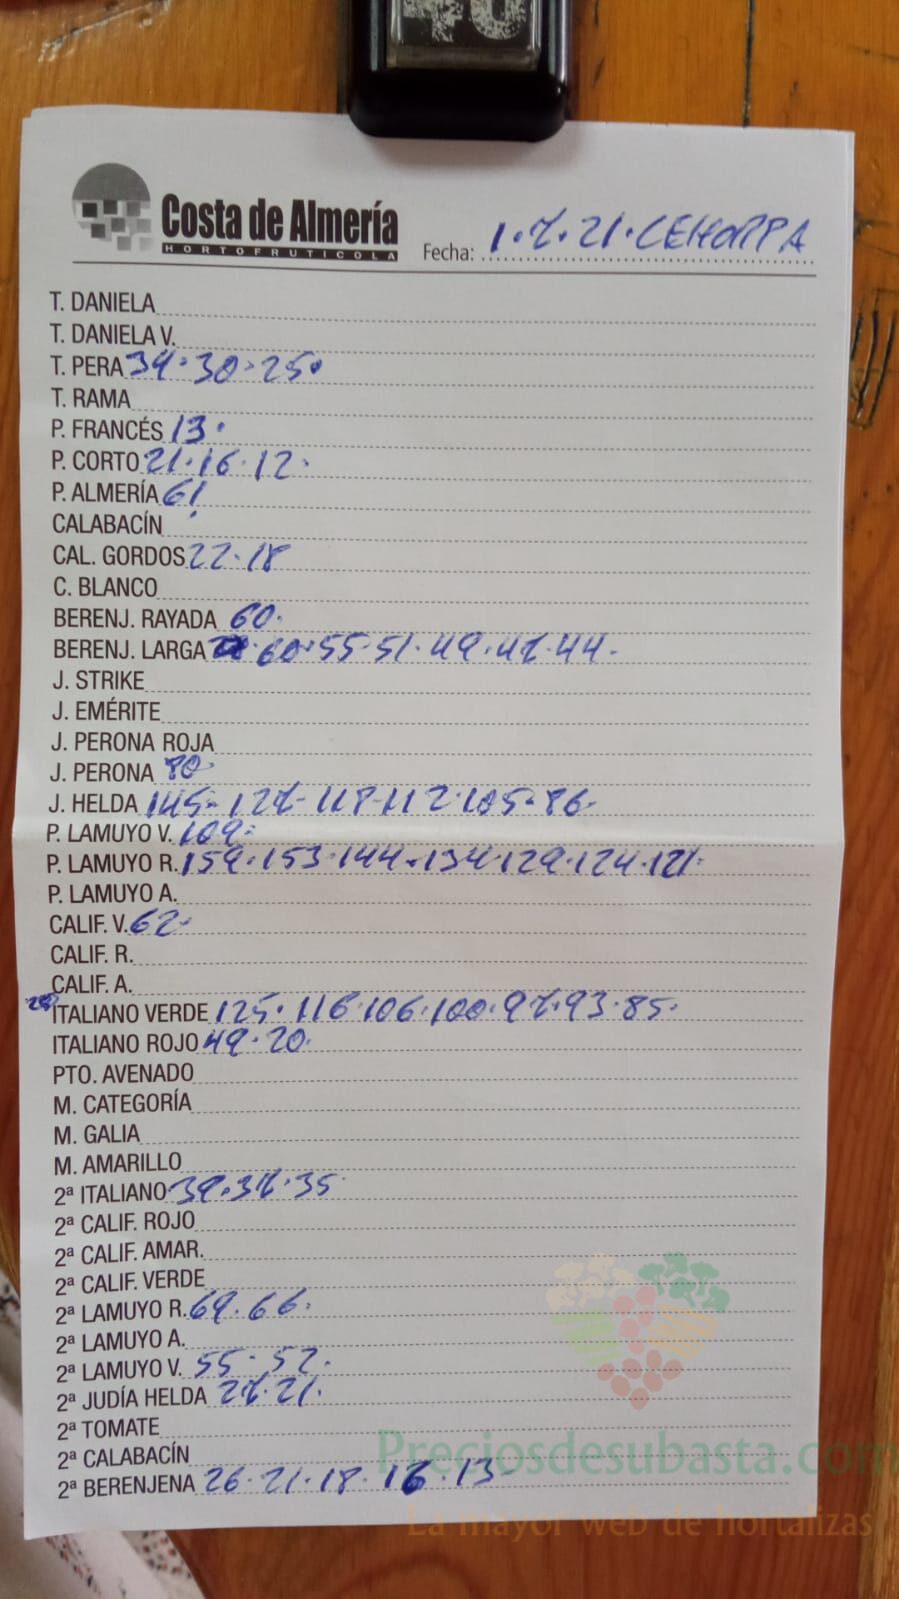 Costa de Almería
HORTOFRUTICOLA
Fecha: 1.7.21.CEHORPA
T. DANIELA
T. DANIELA V.
T. PERA 34.30.25.
T. RAMA
P. FRANCÉS 13.
P. CORTO 21.16.12.
P. ALMERÍA 61
CALABACÍN
CAL. GORDOS 22.18
C. BLANCO
BERENJ. RAYADA 60.
BERENJ. LARGA 60.55.51.49.47.44.
J. STRIKE
J. EMÉRITE
J. PERONA ROJA
J. PERONA 80
J. HELDA 145.127.118.112.105.86.
P. LAMUYO V. 109.
P. LAMUYO R. 159.153.144.134.129.124.121.
P. LAMUYO A.
CALIF. V. 62.
CALIF. R.
CALIF. A.
ITALIANO VERDE 125.116.106.100.97.93.85.
ITALIANO ROJO 49.20.
PTO. AVENADO
M. CATEGORÍA
M. GALIA
M. AMARILLO
2ª ITALIANO 39.37.35
2ª CALIF. ROJO
2ª CALIF. AMAR.
2ª CALIF. VERDE
2ª LAMUYO R. 69.66.
2ª LAMUYO A.
2ª LAMUYO V. 55.52.
2ª JUDÍA HELDA 27.21.
2ª TOMATE
2ª CALABACÍN
2ª BERENJENA 26.21.18.16.13
Preciosdesubasta.com
La mayor web de hortalizas